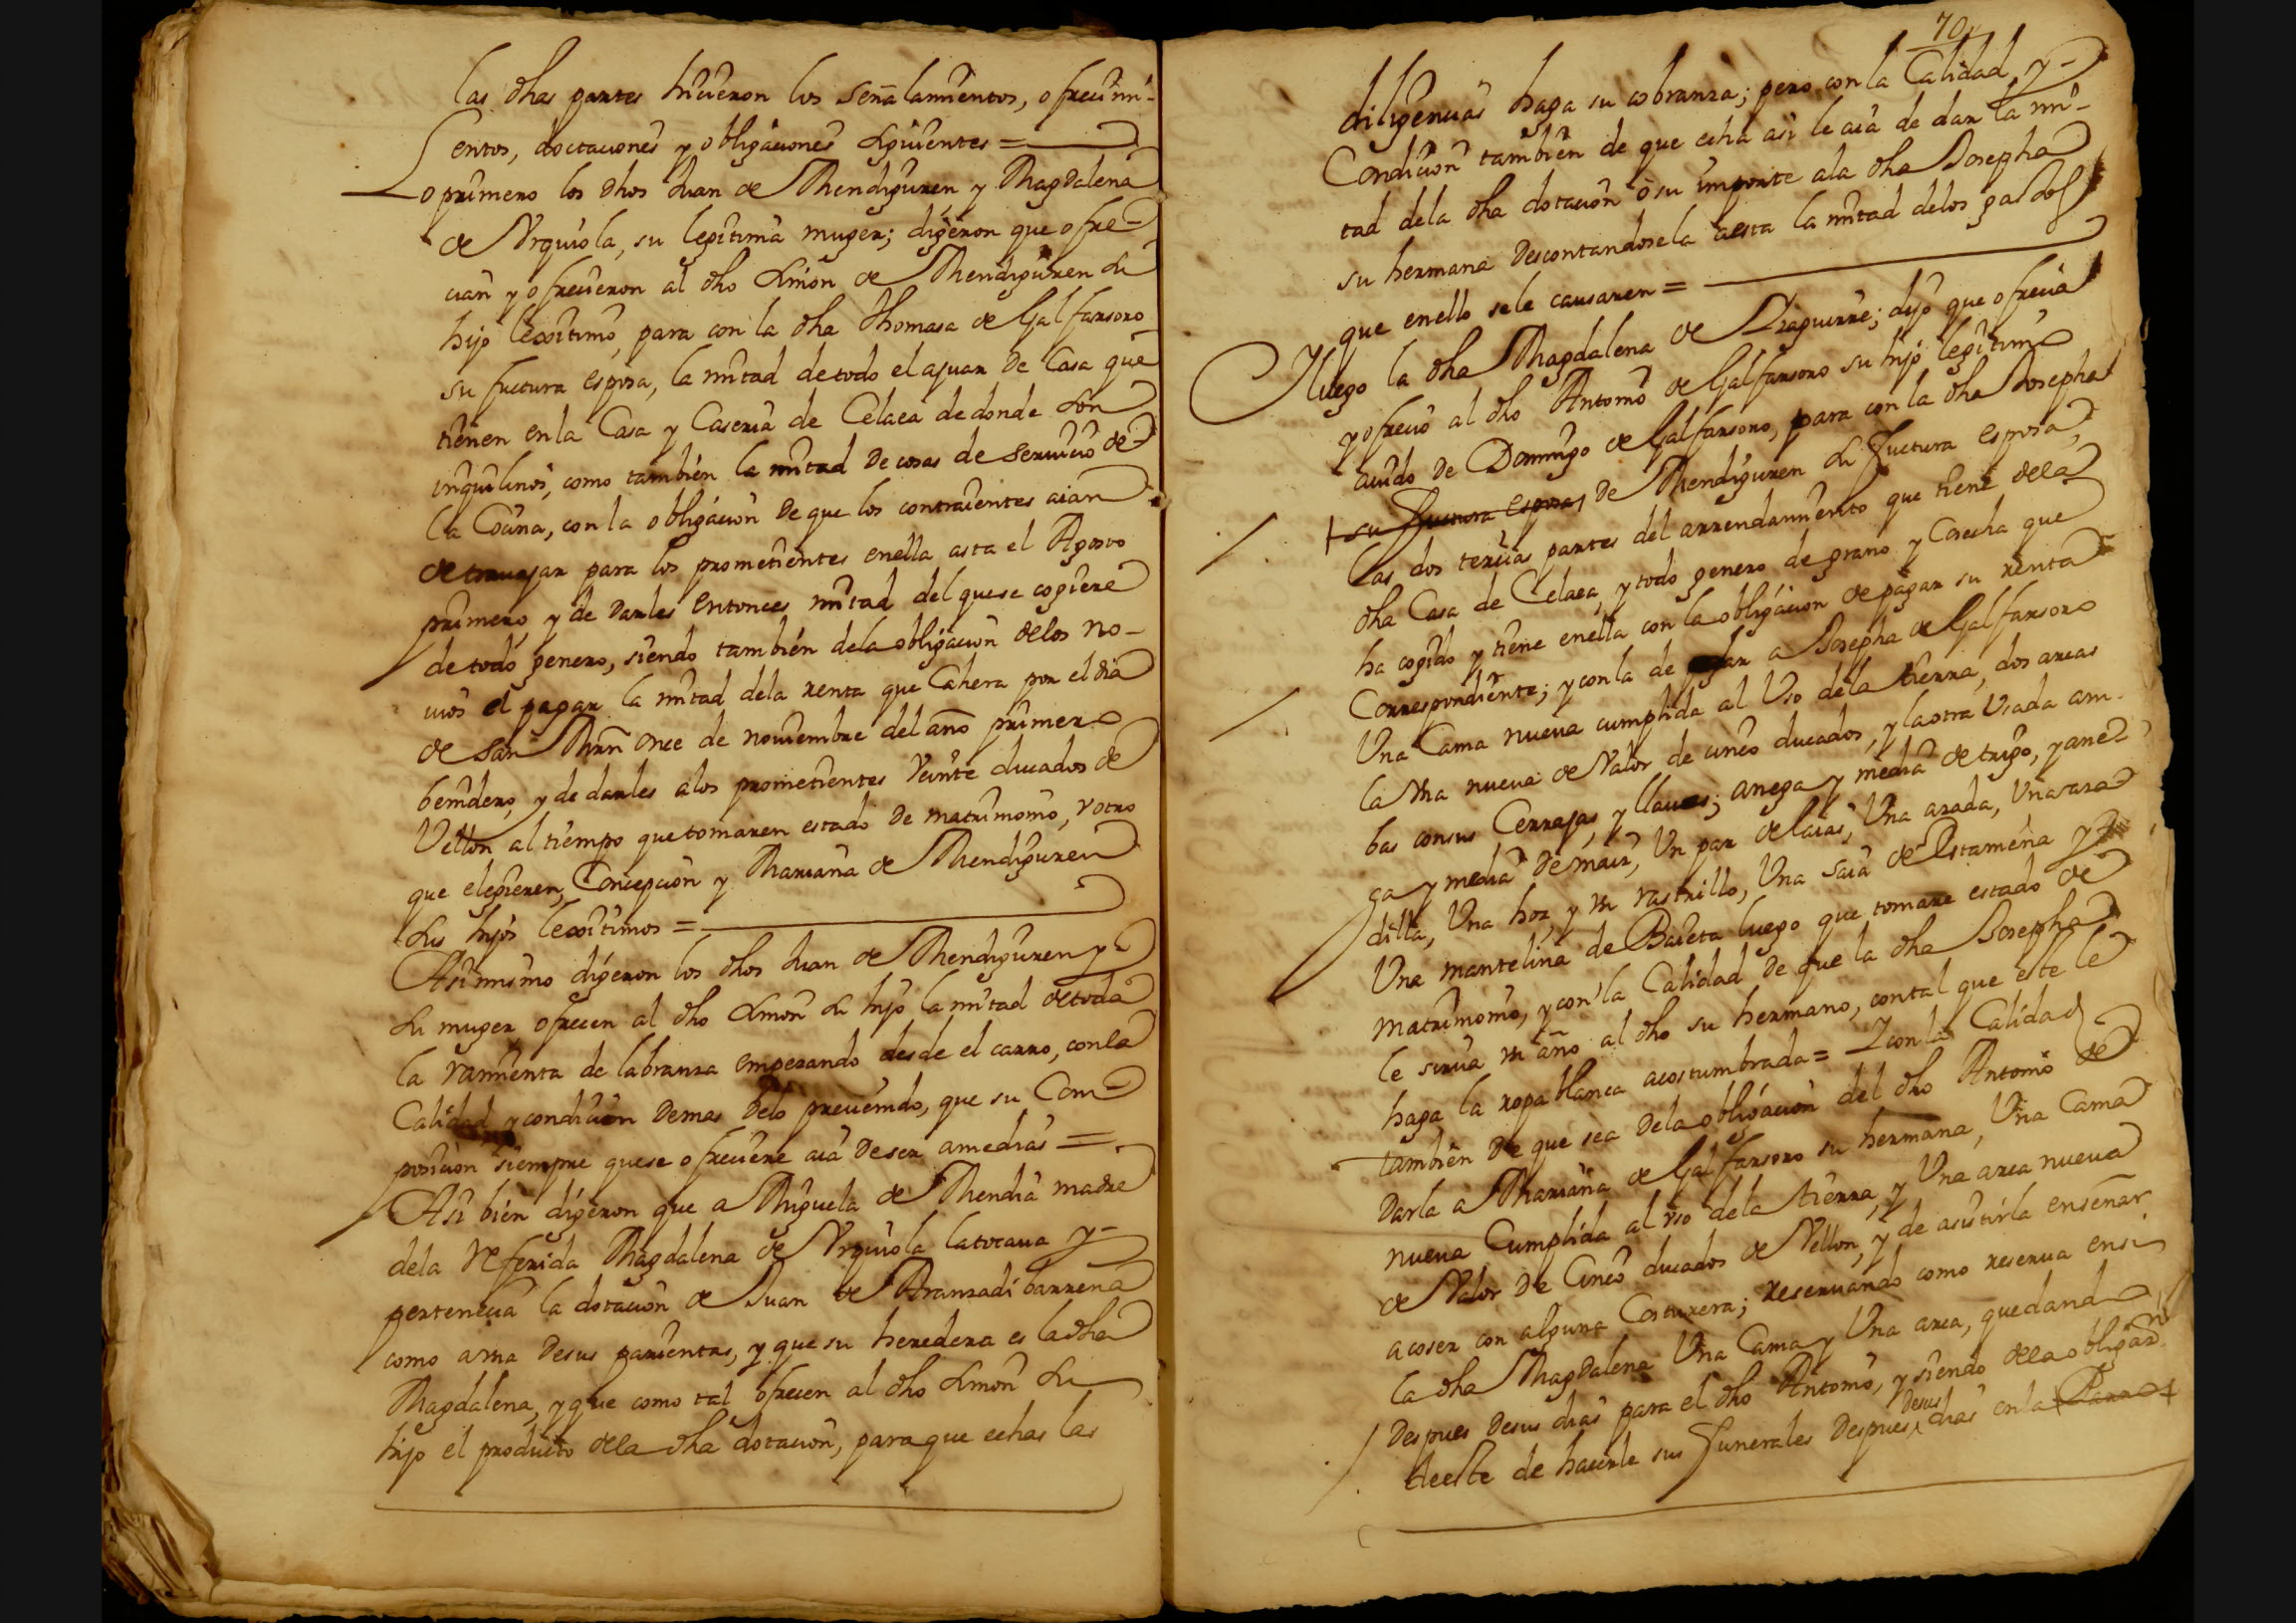 las dhas partes hicieron los señalamientos, ofrecimi-
entos, doctaciones y obligaciones siguientes =
Lo primero los dhos Juan de Mendiguren, y Magdalena
de Vrquiola, su legitima muger; digeron que ofre-
cian y ofrecieron al dho Simon de Mendiguren su
hijo lexitimo, para con la dha Thomasa de Galfarsoro
su fuctura esposa, la mitad de todo el ajuar de Casa que
tienen en la Casa y Caseria de Celaea de donde son
inquilinos, como tambien la mitad de cosas de seruicio de
la Cocina, con la obligacion de que los contraientes aian
de trauajar para los prometientes en ella asta el Agosto
primero, y de darles entonces mitad del que se cogiere
de todo genero, siendo tambien de la obligacion de los no-
uios el pagar la mitad de la renta que Cahera por el dia
de San Mrn once de nouiembre del año primero
benidero, y de darles a los prometientes Veinte ducados de
Vellon al tiempo que tomaren estado de matrimonio, v otro
que eligieren, Concepcion y Mariana de Mendiguren
sus hijos lexitimos =
Asi mismo digeron los dhos Juan de Mendiguren y
su muger ofrecen al dho Simon su hijo la mitad de toda
la rramienta de labranza empezando desde el carro, con la
Calidad y condicion demas de lo preuenido, que su Com-
posicion siempre que se ofreciere aia de ser a medias =
Asi bien digeron que a Miguela de Mendia madre
de la referida Magdalena de Vrquiola la tocaua y
pertenecia la dotacion de Juan de Aranzadi barrena
como a vna de sus parientas, y que su heredera es la dha
Magdalena, y que como tal ofrecen al dho Simon su
hijo el producto de la dha dotacion, para que echas las
70
diligencias haga su cobranza; pero con la Calidad y
Condicion tambien de que echa asi le aia de dar la mi-
tad de la dha dotacion o su importe a la dha Josepha
su hermana descontandosela a esta la mitad de los gastos
que en ello se le causaren =
Y luego la dha Magdalena de Yraguirre; dijo que ofrecia
y ofrecio al dho Antonio de Galfarsoro su hijo legitimo
auido de Domingo de Galfarsoro, para con la dha Josepha
su fuctura esposa, de Mendiguren su fuctura esposa,
las dos tercias partes del arrendamiento que tiene de la
dha Casa de Celaea, y todo genero de grano y Cosecha que
ha cogido y tiene en ella con la obligacion de pagar su renta
Correspondiente; y con la de dar a Josepha de Galfarsoro
Una Cama nueua cumplida al Uso de la tierra, dos arcas
la vna nueua de Valor de cinco ducados, y la otra Usada am-
bas con sus Cerrajas, y llaues; anega y media de trigo, y ane-
ga y media de maiz, Un par de laias, Una azada, Una aza-
dilla, Una hoz, y vn rastrillo, Una saia de Estameña y
Una mantelina de Baieta luego que tomare estado de
matrimonio, y con la Calidad de que la dha Josepha
le sirua vn año al dho su hermano, con tal que este le
haga la ropa blanca acostumbrada = Y con la Calidad
tambien de que sea de la obligacion del dho Antonio de
darla a Mariana de Galfarsoro su hermana, Una Cama
nueua Cumplida al vso de la tierra, y Una arca nueua
de Valor de Cinco ducados de Vellon, y de asistirla enseñar
a coser con alguna Costurera; reseruando como reserua en si
la dha Magdalena Una Cama y Una arca, quedando
despues de sus dias para el dho Antonio, y siendo de la obligazn
de este de hacerle sus funerales despues de sus dias en la